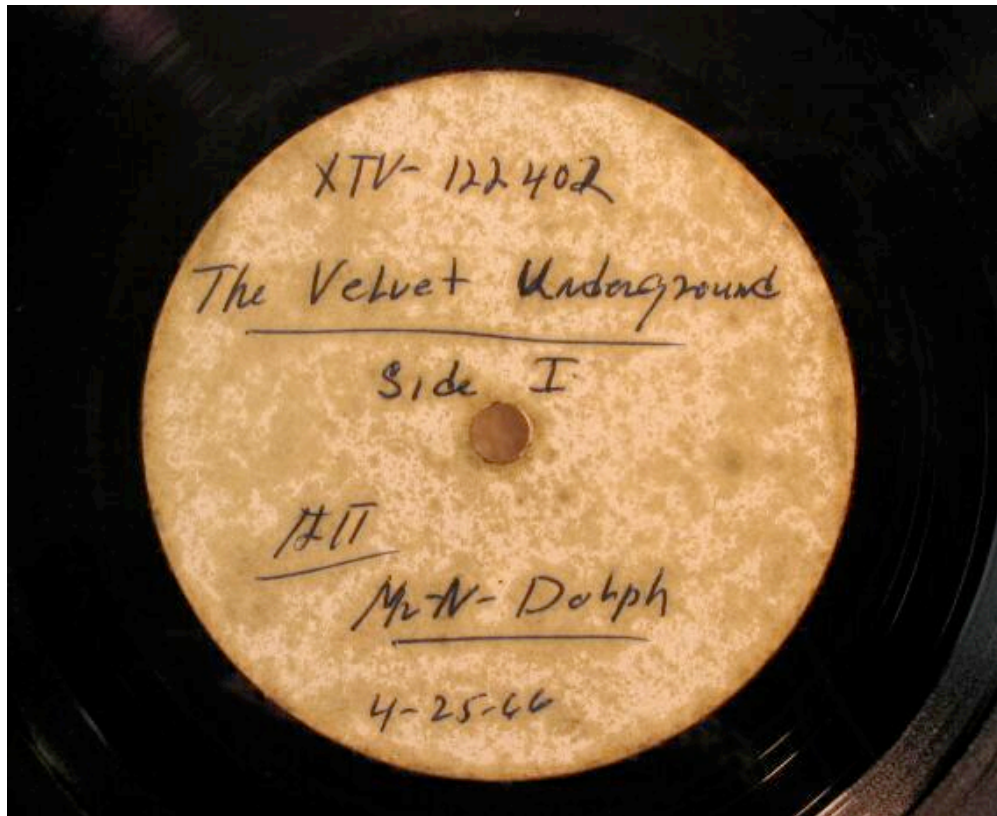 XTV-122402
The Velvet Underground
Side I
Att
Mr-N-Dolph
4-25-66